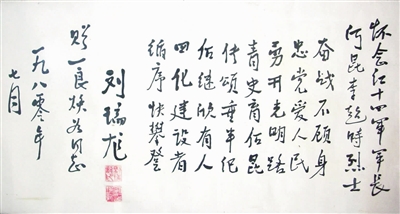 怀念红十四军军长
何昆李超時烈士
奋战不顾身
忠党爱人民
勇开光明路
青史育后昆
传颂垂半纪
后继欣有人
四化建设者
循序快攀登
刘瑞龙
赠一良 同志
一九八零年
七月